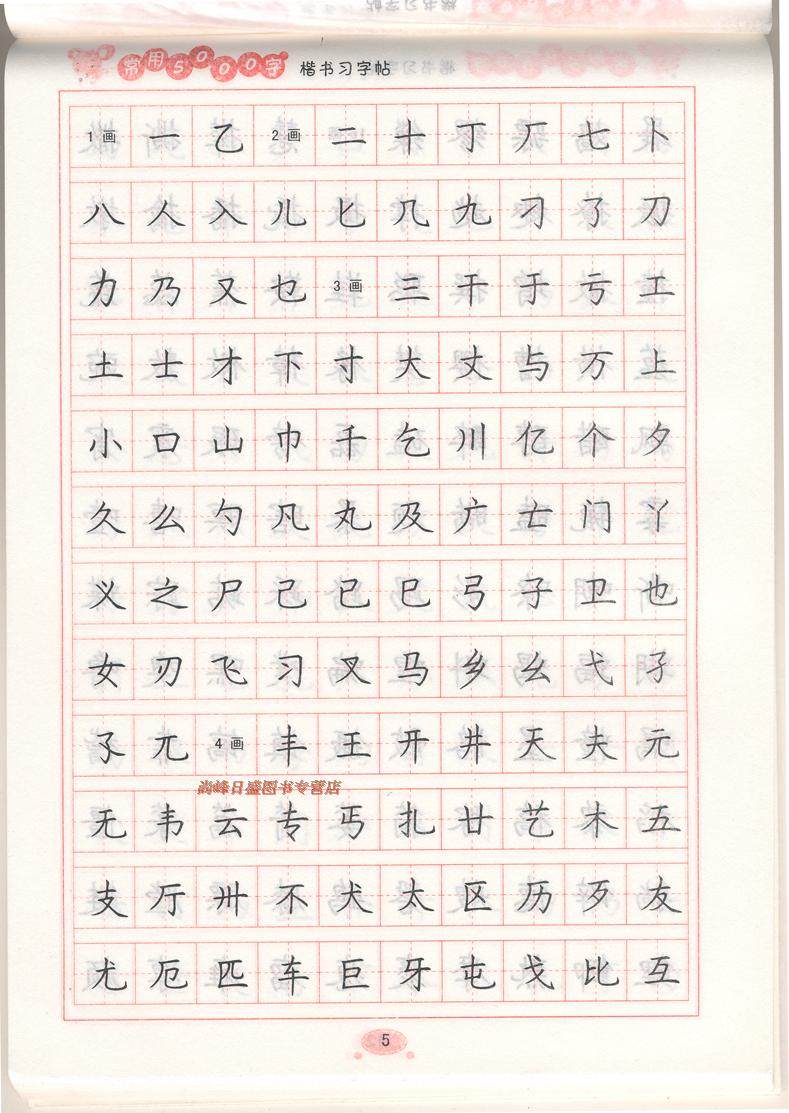 常用5000字 楷书习字帖
1画 一 乙 2画 二 十 丁 厂 七 卜
八 人 入 儿 匕 几 九 刁 了 刀
力 乃 又 乜 3画 三 干 于 亏 工
土 士 才 下 寸 大 丈 与 万 上
小 口 山 巾 千 乞 川 亿 个 夕
久 么 勺 凡 丸 及 广 亡 门 丫
义 之 尸 己 已 巳 弓 子 卫 也
女 刃 飞 习 叉 马 乡 幺 弋 孑
孓 兀 4画 丰 王 开 井 天 夫 元
无 韦 云 专 丐 扎 廿 艺 木 五
支 厅 卅 不 犬 太 区 历 歹 友
尤 厄 匹 车 巨 牙 屯 戈 比 互
5